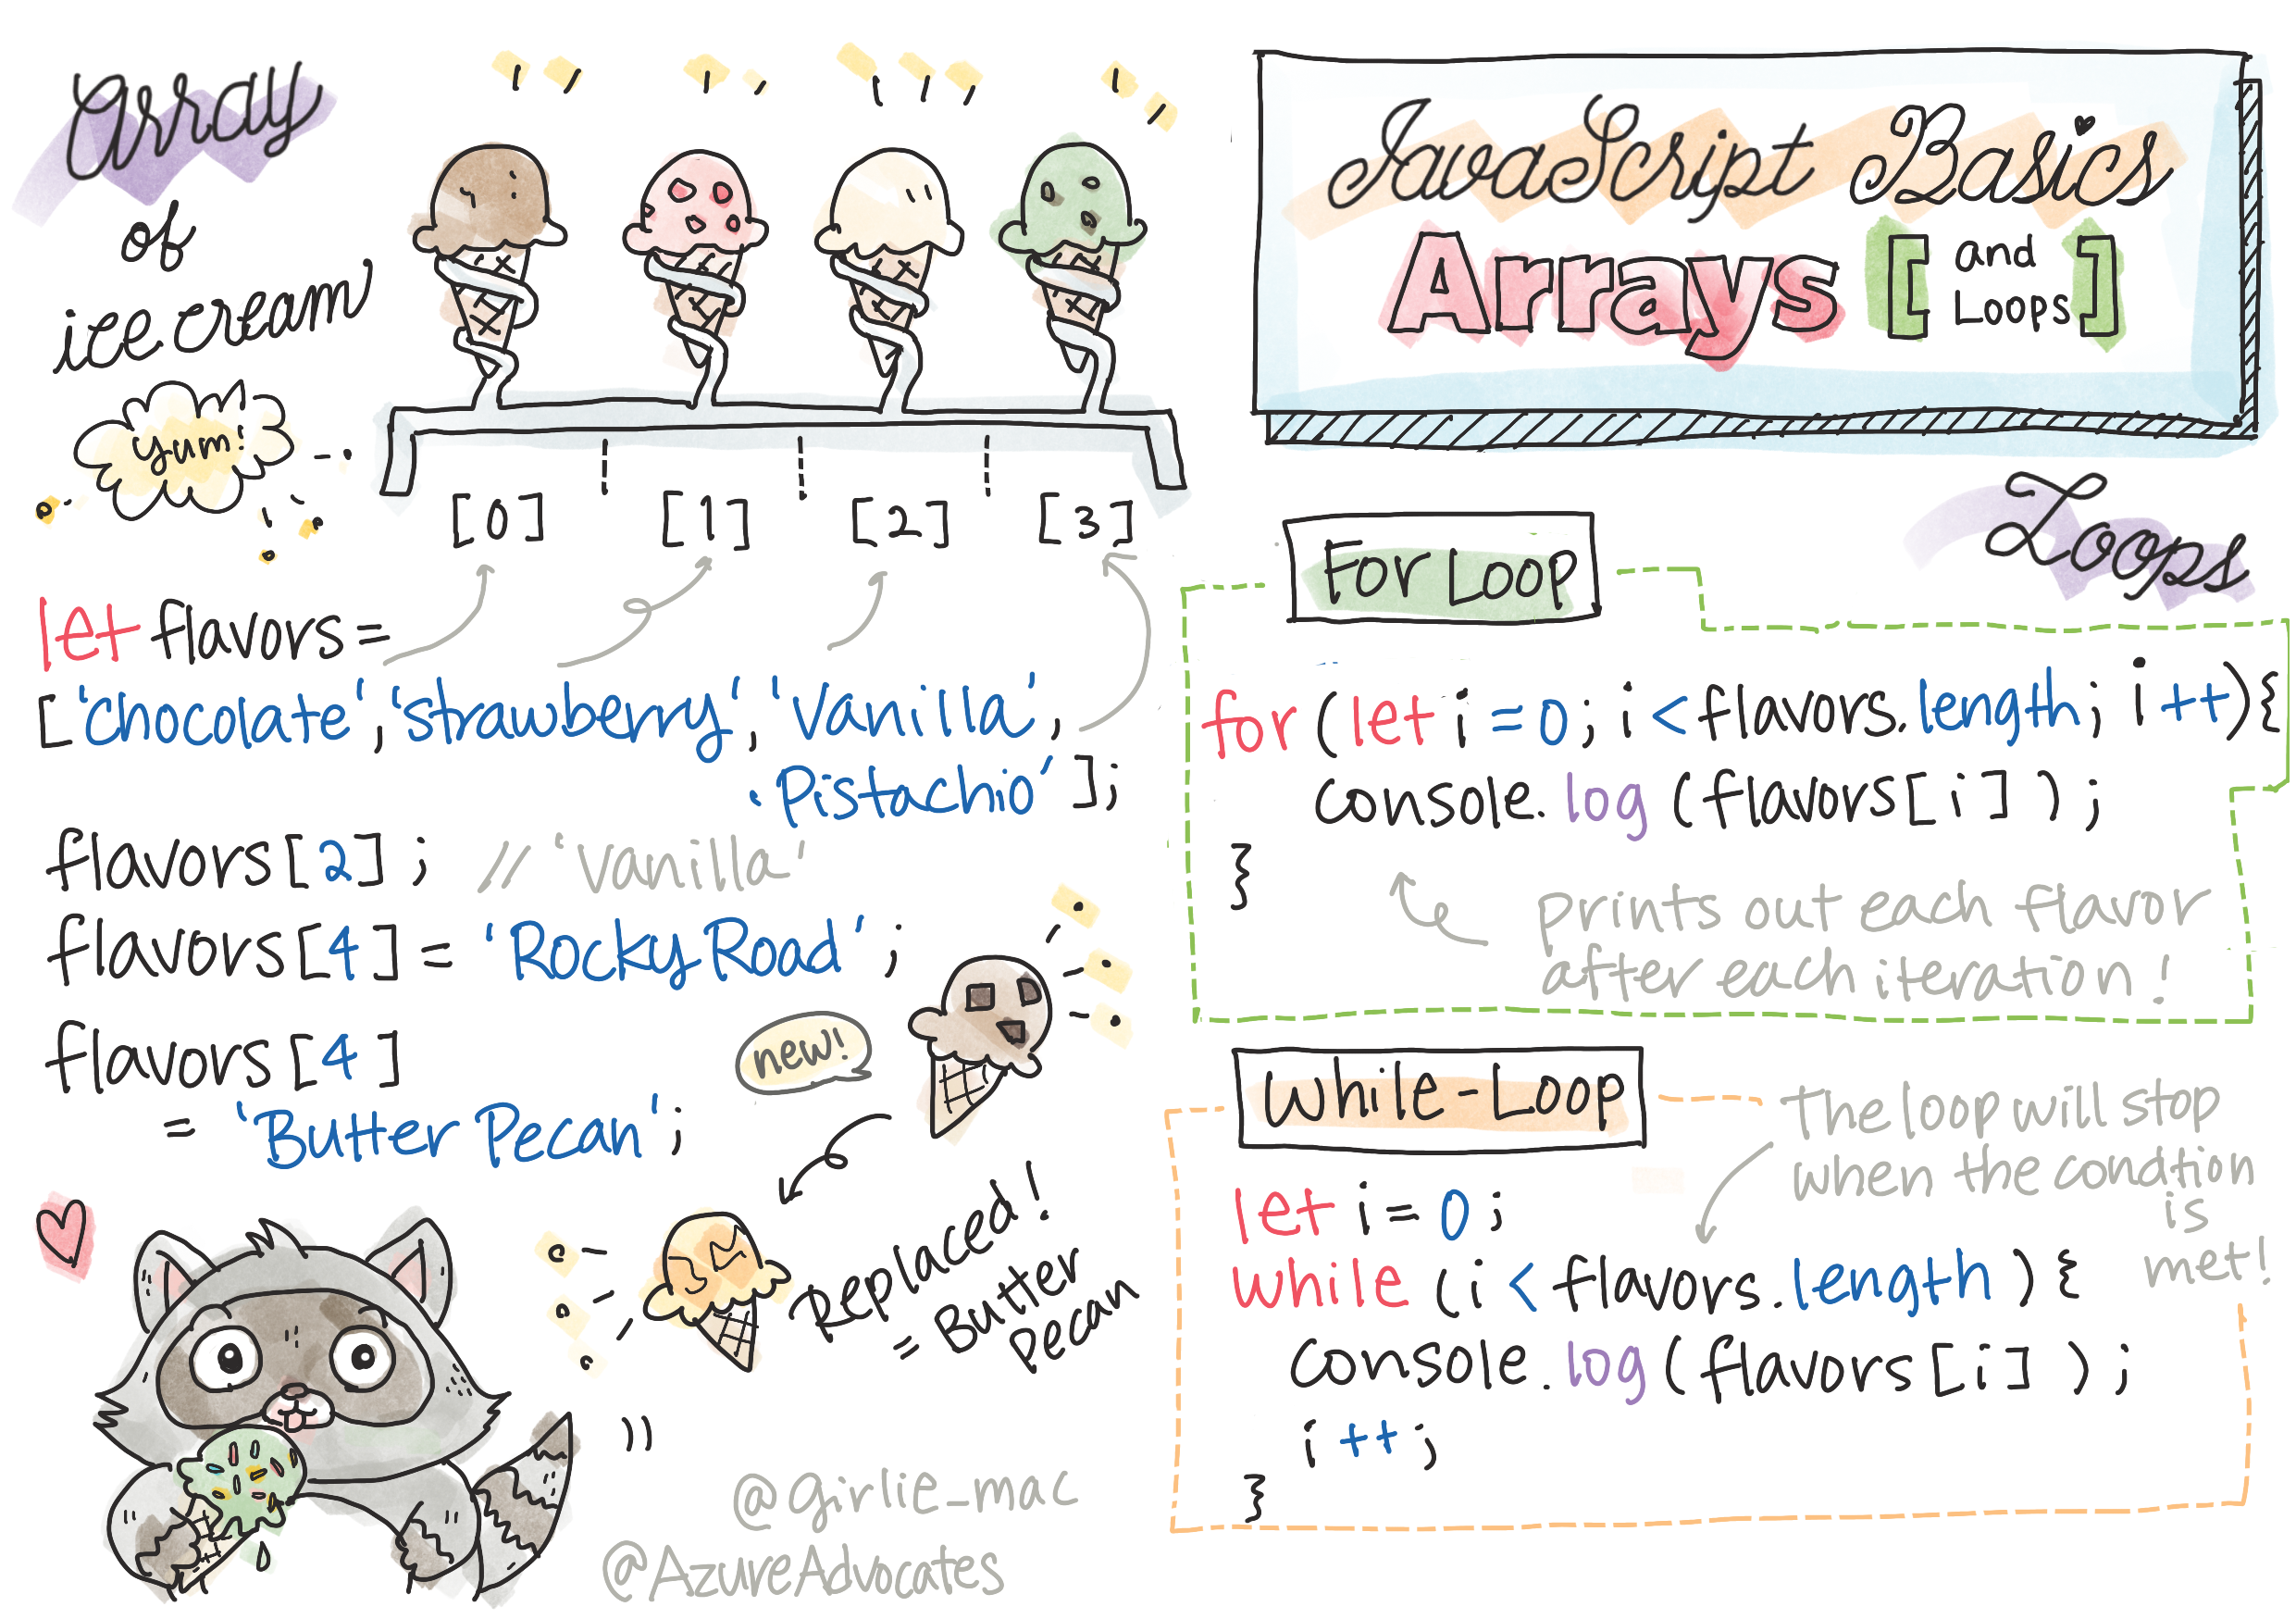 Array
of
ice cream
yum!
[0] [1] [2] [3]
let flavors =
['chocolate', 'strawberry', 'Vanilla',
'Pistachio'];
flavors[2]; // 'Vanilla'
flavors[4] = 'Rocky Road';
new!
flavors[4]
= 'Butter Pecan';
Replaced!
= Butter
Pecan
@girlie_mac
@AzureAdvocates
JavaScript Basics
Arrays [ and
Loops ]
Loops
For Loop
for (let i = 0; i < flavors.length; i++){
console.log(flavors[i]);
}
prints out each flavor
after each iteration!
While-Loop
The loop will stop
when the condtion
is
met!
let i = 0;
while (i < flavors.length) {
console.log(flavors[i]);
i++;
}